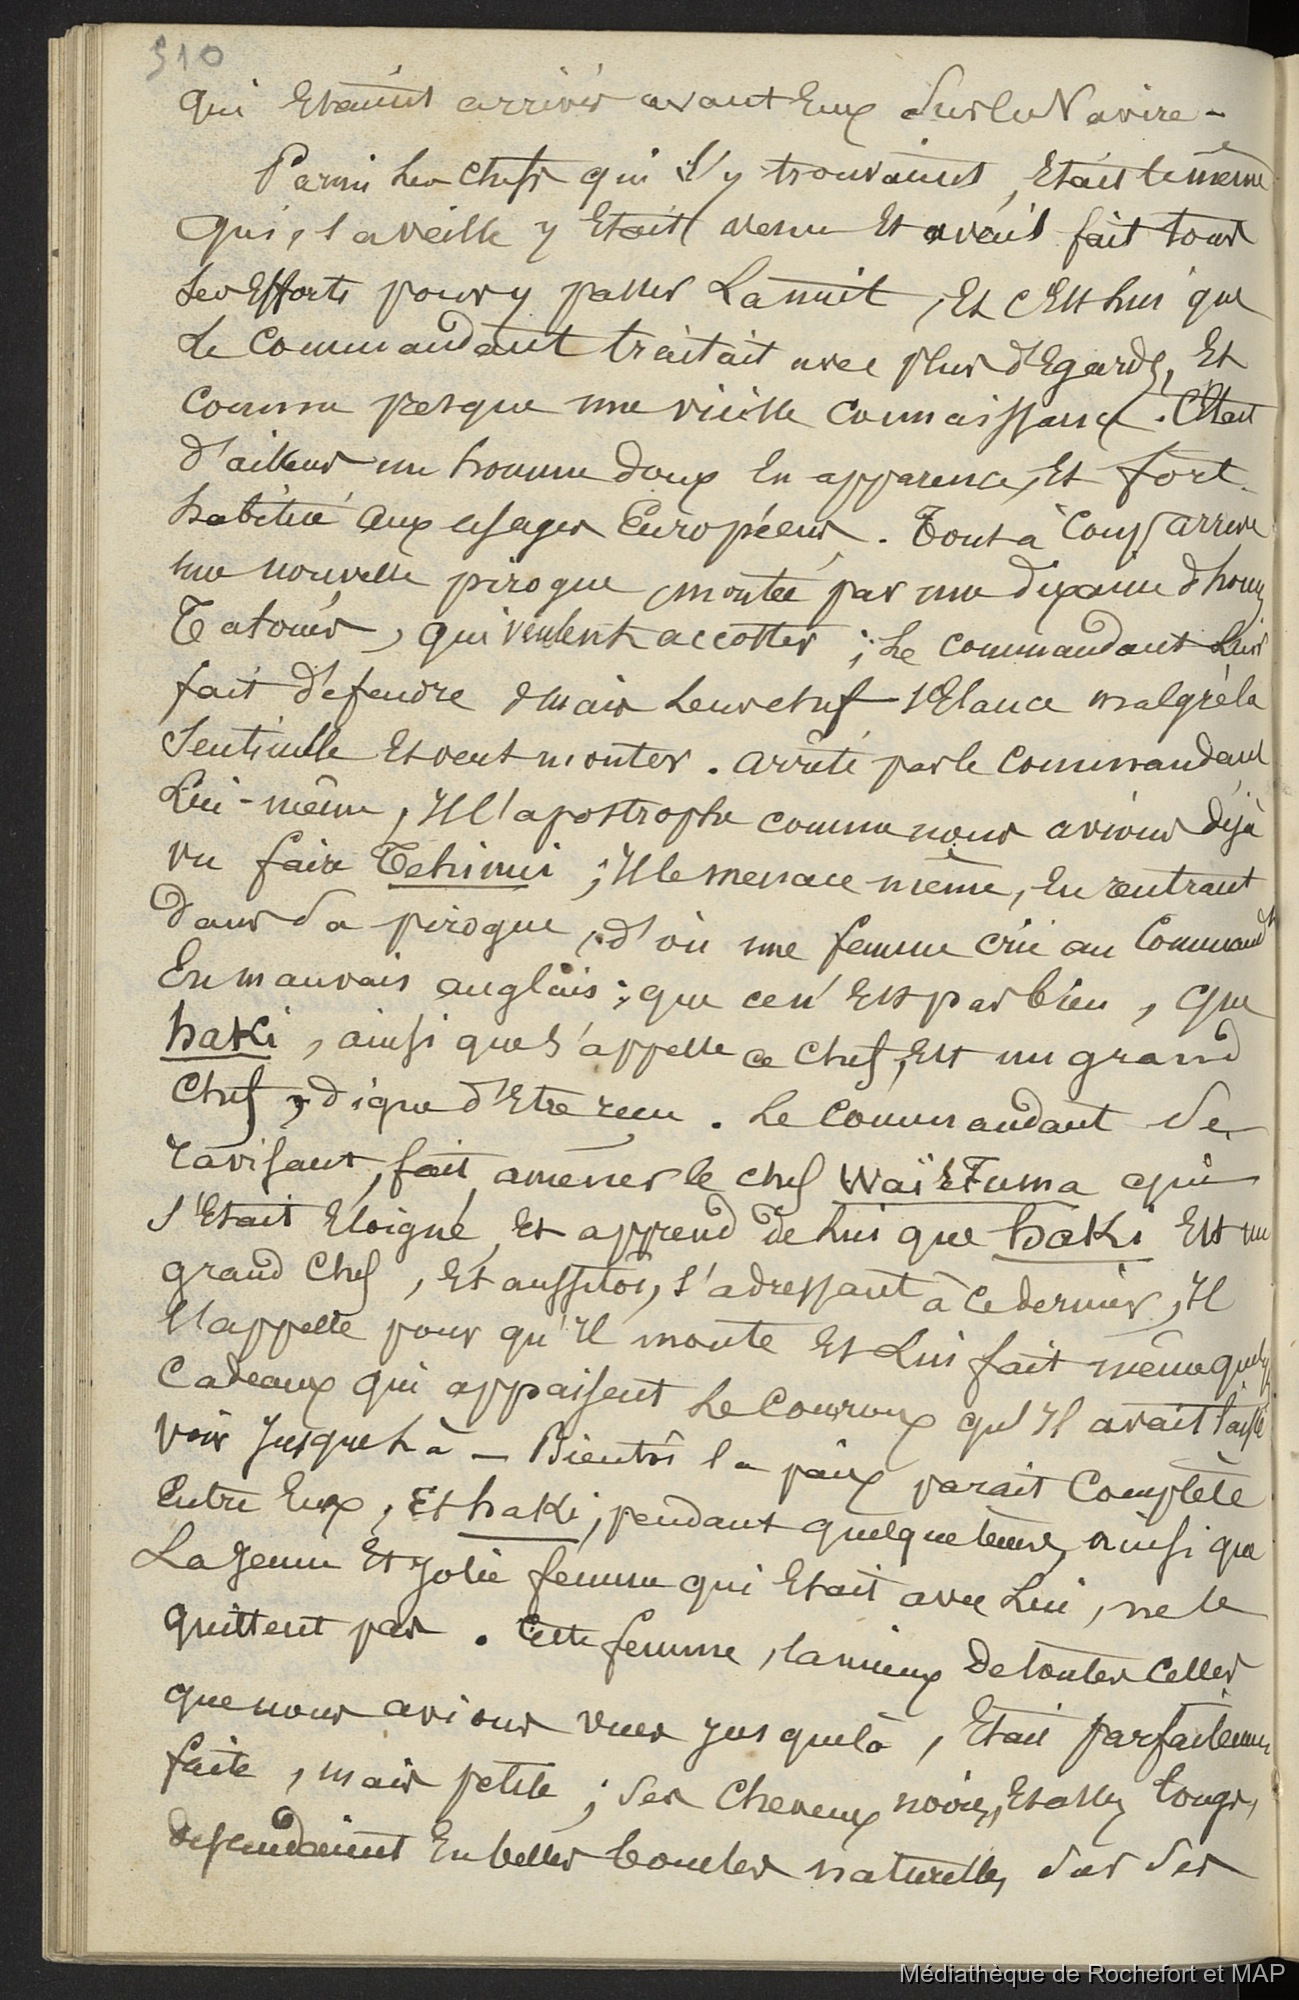 310
qui Etaient arrivés avant Eux sur le Navire -
Parmi les chefs qui s'y trouvaient, Etait le même
qui, la veille y Etait venu Et avait fait tous
ses Efforts pour y passer La nuit, Et c'Est lui que
Le Commandant traitait avec plus d'Egards, Et
comme presque une vieille connaissance. C'Etait
d'ailleurs un homme doux En apparence, Et fort
habitué aux usages Européens. Tout à Coup arrive
une nouvelle pirogue montée par une dixaine d'hom
Tatoués, qui veulent accoster ; Le commandant Leur
fait défendre mais Leur chef s'Elance malgré la
Sentinelle Et veut monter. arrêté par le Commandant
Lui-même, Il l'apostrophe comme nous avions déjà
vu faire Tehimui ; Il le menace même, En rentrant
dans sa pirogue, d'où une femme crie au Command^t
En mauvais anglais : que ce n'Est pas bien, que
haKi, ainsi que s'appelle ce Chef, Est un grand
Chef, digne d'Etre reçu. Le Commandant se
ravisant, fait amener le chef Waï Etuma qui
s'Etait Eloigné, Et apprend de Lui que haKi Est un
grand Chef, Et aussitôt, s'adressant à ce dernier, Il
l'appelle pour qu'Il monte Et Lui fait même quelq
Cadeaux qui appaisent Le Couroux qu'Il avait laissé
voir Jusque Là - Bientôt la paix parait Complète
Entre Eux, Et haKi, pendant quelque tems, ainsi que
La Jeune Et Jolie femme qui Etait avec Lui, ne le
quittent pas. Cette femme, la mieux de toutes Celles
que nous avions vues Jusque là, Etait parfaitement
faite, mais petite ; ses Cheveux noirs, Et assez longs,
descendaient En belles boucles naturelles, sur ses
Médiathèque de Rochefort et MAP